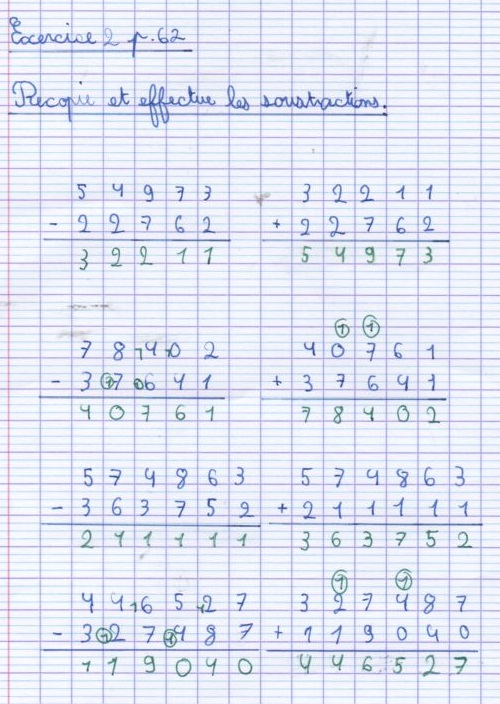 Exercice 2 p.62
Recopie et effectue les soustractions.
5 4 9 7 3
- 2 2 7 6 2
3 2 2 1 1
3 2 2 1 1
+ 2 2 7 6 2
5 4 9 7 3
7 8 14 10 2
- 3 1 7 1 6 4 1
4 0 7 6 1
1 1
4 0 7 6 1
+ 3 7 6 4 1
7 8 4 0 2
5 7 4 8 6 3
- 3 6 3 7 5 2
2 1 1 1 1 1
5 7 4 8 6 3
+ 2 1 1 1 1 1
3 6 3 7 5 2
4 4 16 5 12 7
- 3 1 2 7 1 4 8 7
1 1 9 0 4 0
1 1
3 2 7 4 8 7
+ 1 1 9 0 4 0
4 4 6 5 2 7